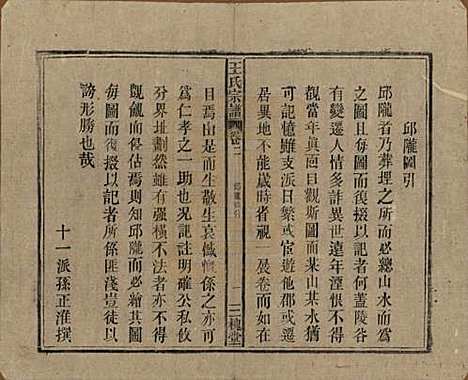 邱隴圖引
邱隴者乃葬埋之所必總山水而爲
之圖且每圖而復掇以記者何蓋陵谷
有變遷人情多詐異世遠年湮恨不得
觀當年眞面目觀斯圖而某山某水猶
可記憶雖支派日繁或宦遊他郡或遷
居異地不能歲時省一展卷而
王氏宗譜
卷二
邱隴圖引
三槐堂
目焉由是而生敬生哀慨係之亦可
爲仁孝之一助也况附近總墟公私攸
分界址劃然有强橫不法者亦不得
覬覦而侵佔焉則知邱隴而必繪其圖
每圖而復掇以記者所係匪淺豈徒以
誇形勝也哉
十一派孫正淮撰